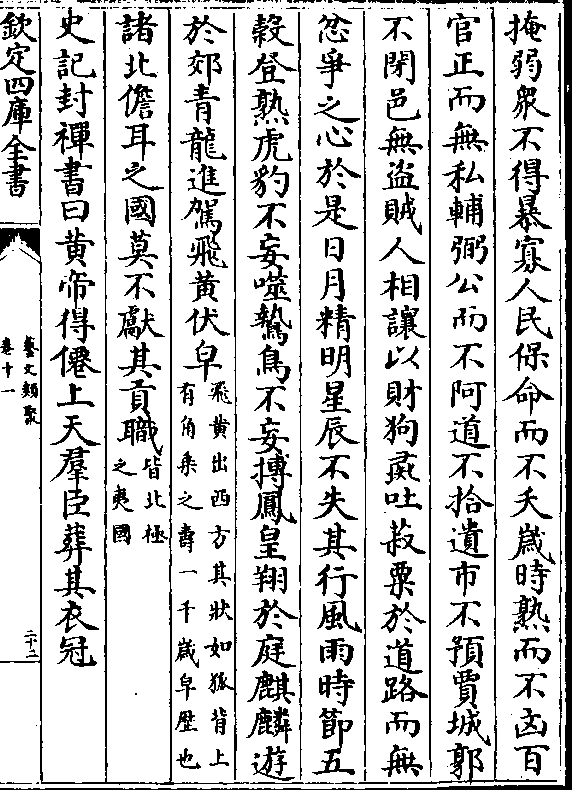 掩弱衆不得暴寡人民保命而不夭歲時熟而不凶百
官正而無私輔弼公而不阿道不拾遺市不預賈城郭
不閉邑無盜賊人相讓以財狗彘吐菽粟於道路而無
忿爭之心於是日月精明星辰不失其行風雨時節五
穀登熟虎豹不妄噬鷙鳥不妄搏鳳皇翔於庭麒麟遊
於郊青龍進駕飛黄伏皁飛黄出西方其狀如狐背上有角乘之壽一千歲皁歴也
諸北儋耳之國莫不獻其貢職皆北極之夷國
史記封禪書曰黄帝得僊上天羣臣葬其衣冠
欽定四庫全書
藝文類聚
卷十一
二十二